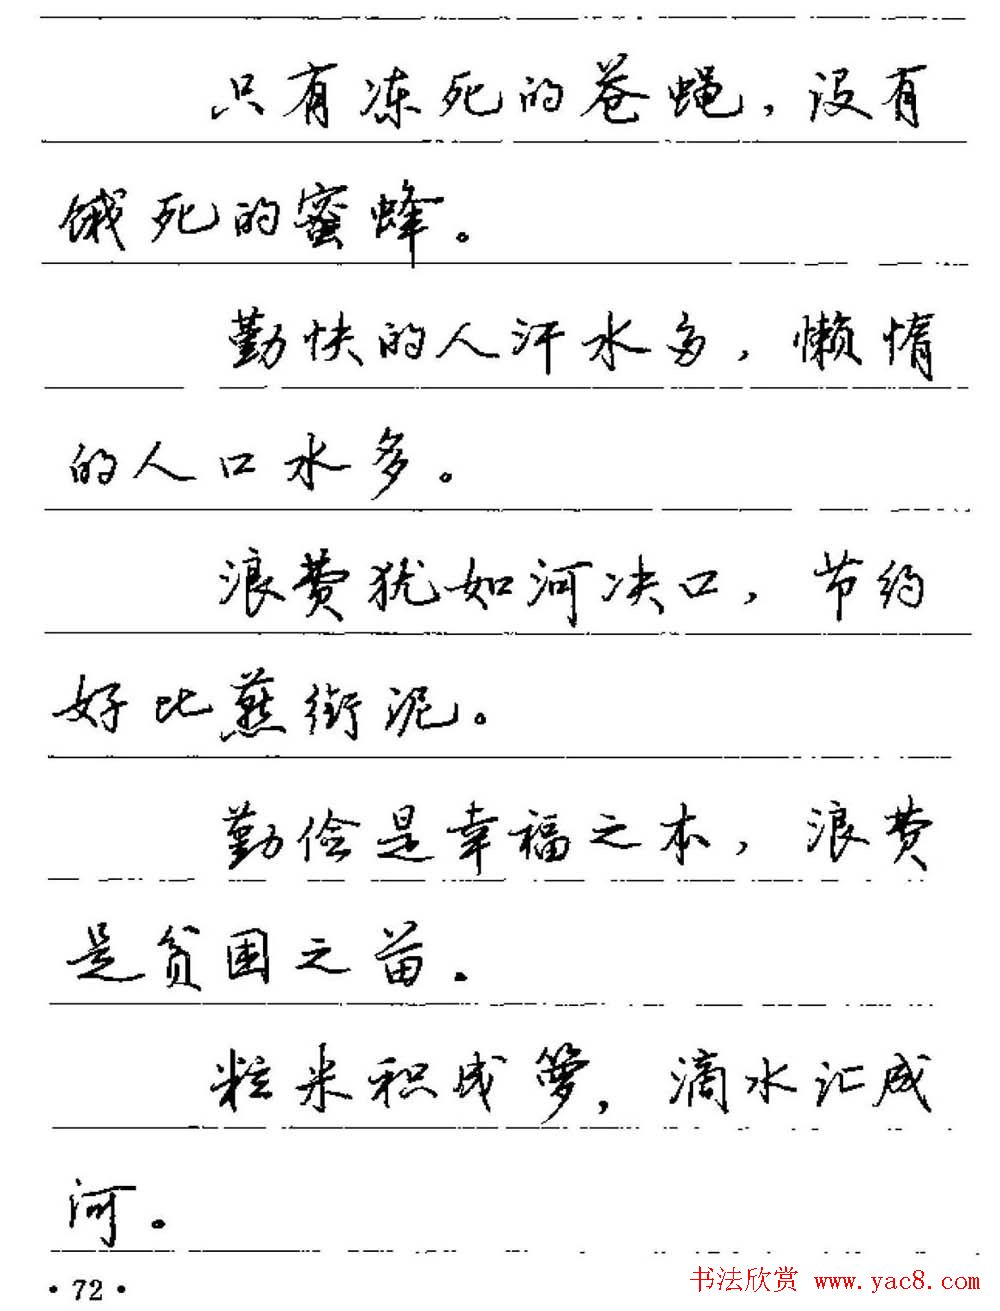 只有冻死的苍蝇，没有
饿死的蜜蜂。
勤快的人汗水多，懒惰
的人口水多。
浪费犹如河决口，节约
好比燕衔泥。
勤俭是幸福之本，浪费
是贫困之苗。
粒米积成箩，滴水汇成
河。
·72·
书法欣赏 www.yac8.com